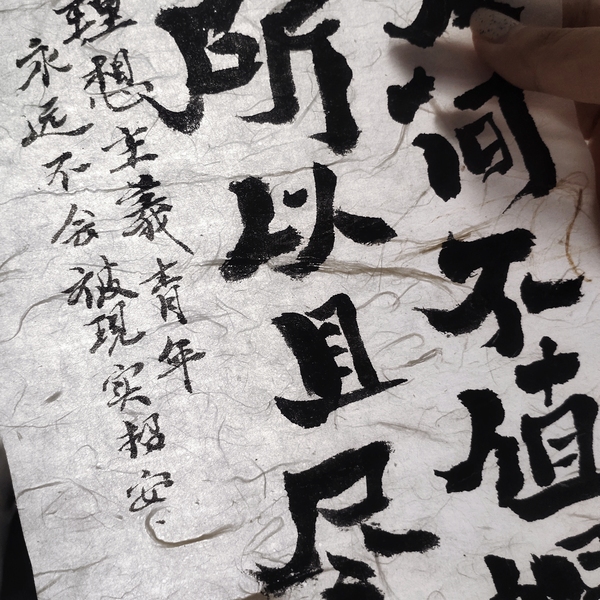 人间不值
所以且尽
理想主义青年
永远不会被现实招安